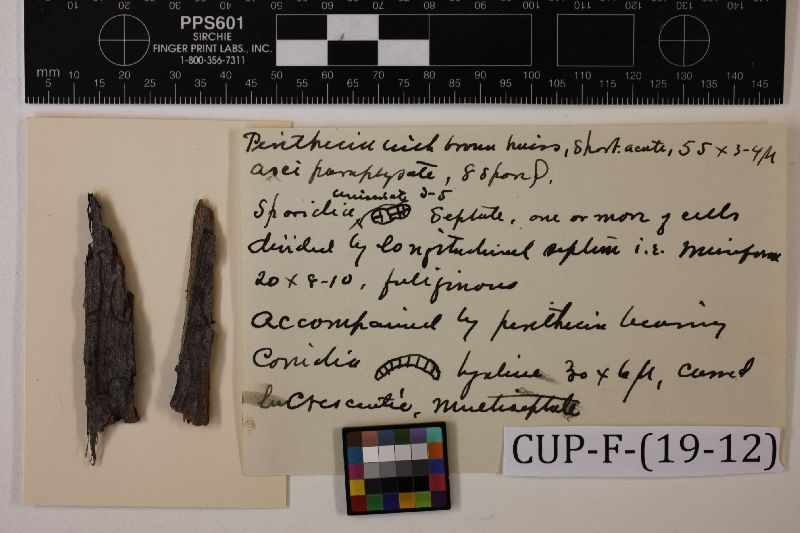 PPS601
SIRCHIE
FINGER PRINT LABS., INC.
1-800-356-7311
10 20 30 40 50 60 70 80 90 100 110 120 130 140
mm 5 15 25 35 45 55 65 75 85 95 105 115 125 135 145
Perithecia with brown hairs, short, acute, 55 x 3-4µ
asci paraphysate, 8 spored.
uniseriate 3-5
Sporidia septate, one or more of cells
divided by longitudinal septum i.e. muriform
20 x 8-10, fuliginous
accompanied by perithecia bearing
Conidia hyaline 30 x 6µ, curved
lunate, multiseptate
CUP-F-(19-12)